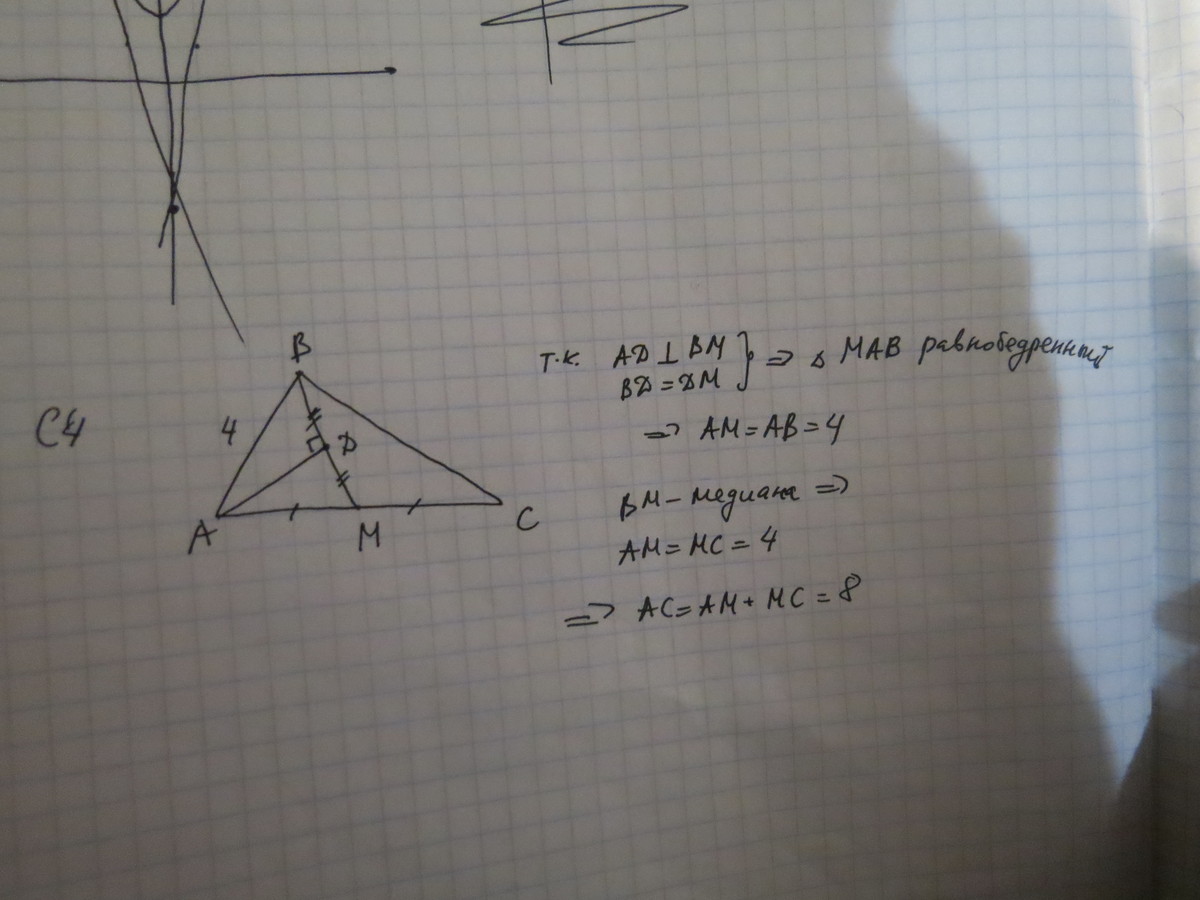 C4
B
4
D
A
M
C
т.к. AD ⊥ BM } => △ MAB равнобедренный
BD = DM
=> AM = AB = 4
BM – медиана =>
AM = MC = 4
=> AC = AM + MC = 8